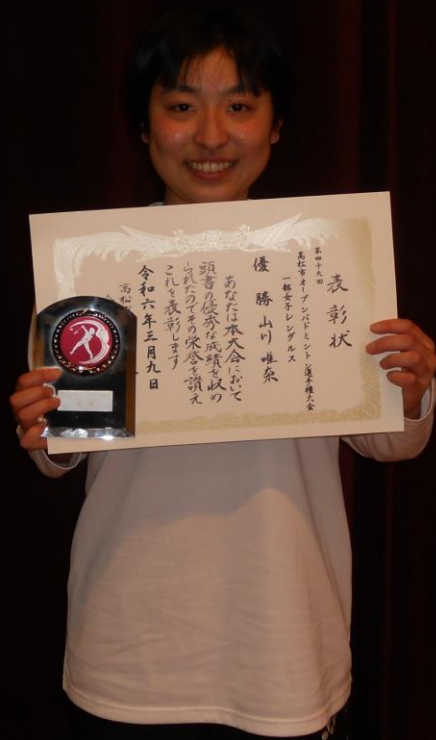 表彰状
第四十九回
高松市オープンバドミントン選手権大会
一部女子シングルス
優勝 山川 唯奈
あなたは本大会において
頭書の優秀な成績を収め
られたのでその栄誉を讃え
これを表彰します
令和六年三月九日
高松